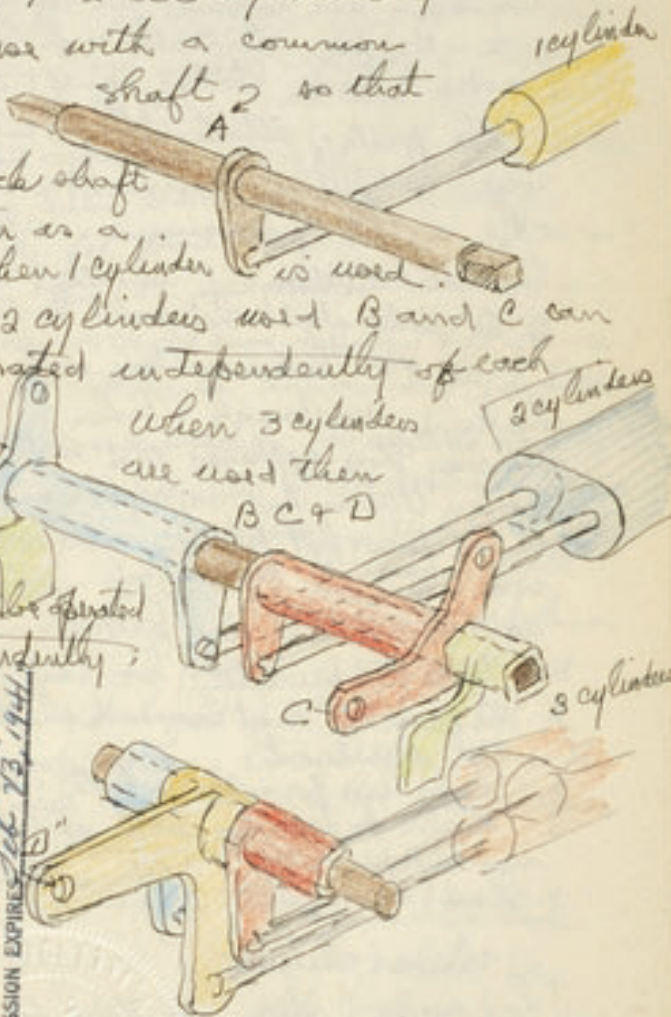 use with a common
1 cylinder
shaft 2 so that
A
shaft
as a
when 1 cylinder is used.
2 cylinders used B and C can
independently of each
2 cylinders
when 3 cylinders
are used then
B C & D
be operated
C
3 cylinders
D"
SSION EXPIRES Feb 23, 1941